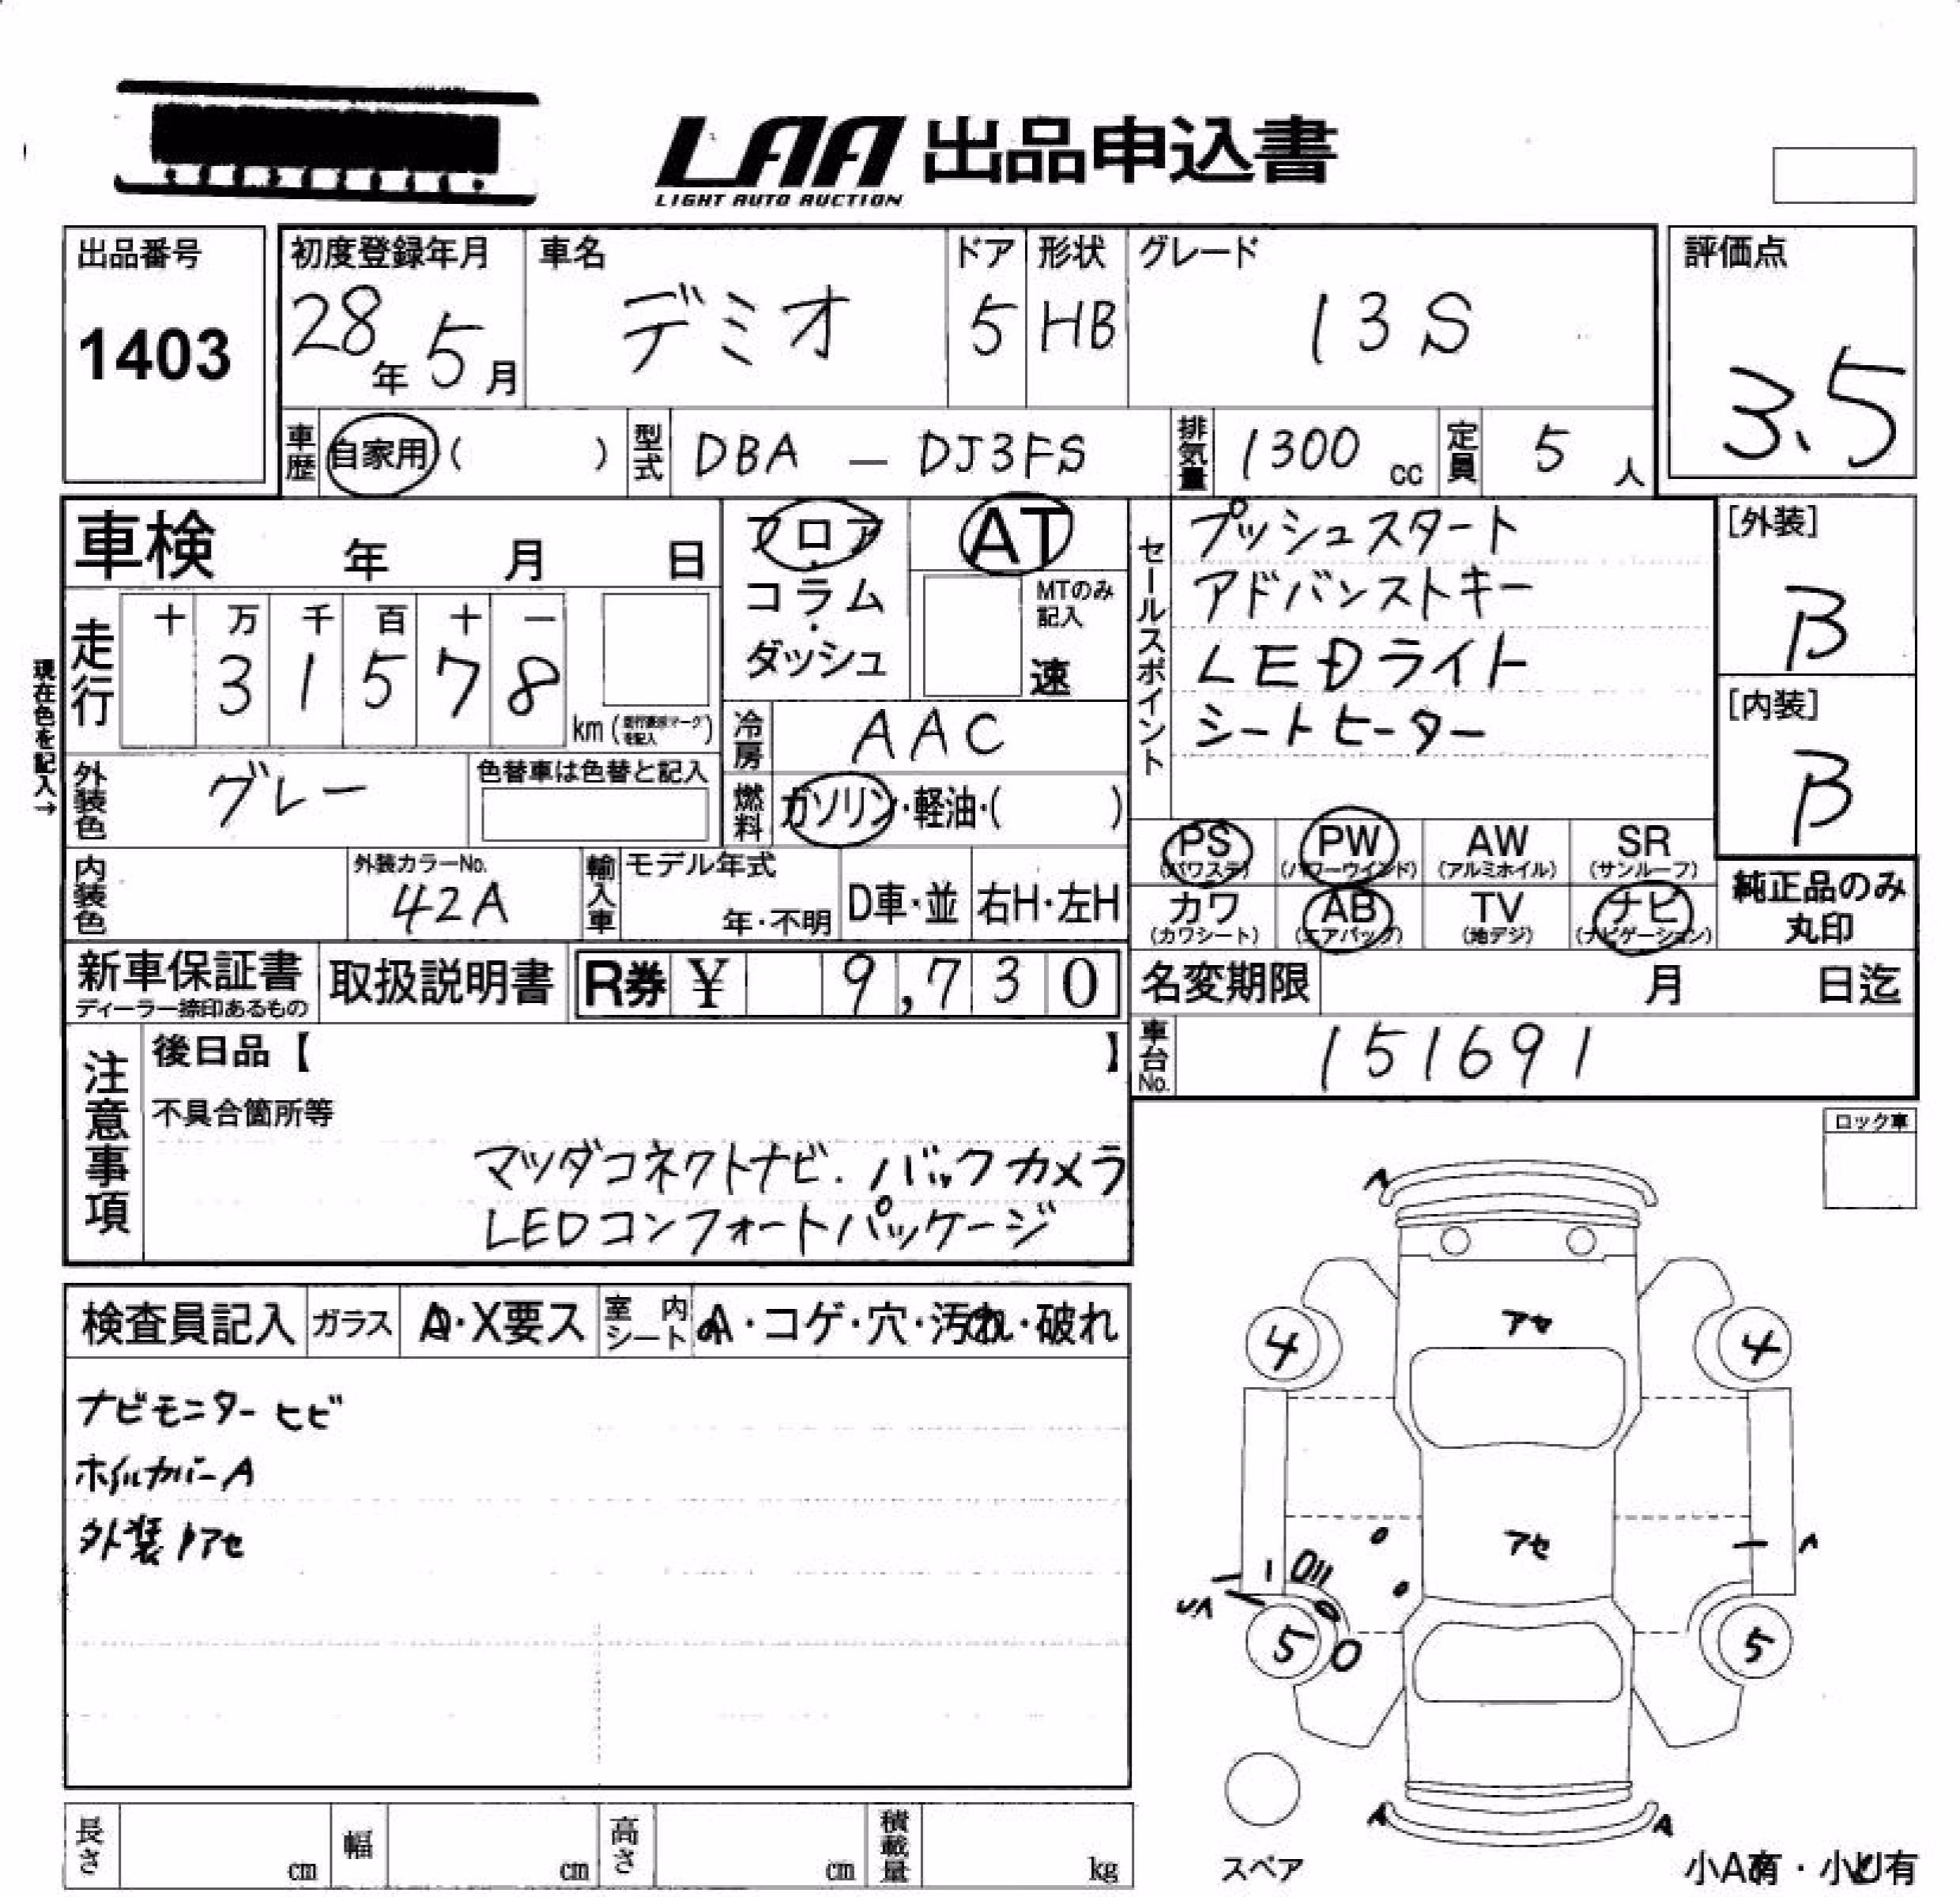 LAA 出品申込書
LIGHT AUTO AUCTION
出品番号
1403
初度登録年月
28年 5月
車名
デミオ
ドア
5
形状
HB
グレード
13S
評価点
3.5
車歴 自家用 ( )
型式 DBA — DJ3FS
排気量 1300 cc
定員 5 人
車検 年 月 日
フロア・コラム・ダッシュ
AT
MTのみ記入
速
現在色を記入→
走行
十 万 千 百 十 一
3 1 5 7 8
km
冷房 AAC
外装色 グレー
色替車は色替と記入
燃料 ガソリン・軽油・( )
セールスポイント
プッシュスタート
アドバンストキー
LEDライト
シートヒーター
[外装]
B
[内装]
B
PS (パワステ)
PW (パワーウインド)
AW (アルミホイル)
SR (サンルーフ)
カワ (カワシート)
AB (エアバッグ)
TV (地デジ)
ナビ (ナビゲーション)
純正品のみ
丸印
内装色
外装カラーNo.
42A
輸入車
モデル年式
年・不明
D車・並
右H・左H
新車保証書
ディーラー捺印あるもの
取扱説明書
R券 ¥ 9,730
名変期限 月 日迄
車台No. 151691
注意事項
後日品【 】
不具合箇所等
マツダコネクトナビ. バックカメラ
LEDコンフォートパッケージ
ロック車
検査員記入
ガラス
A・X要ス
室内シート
A・コゲ・穴・汚れ・破れ
ナビモニターヒビ
ホイルカバーA
外装アセ
A
アセ
4 4
アセ
5 5
A A
スペア
長さ cm
幅 cm
高さ cm
積載量 kg
小A有・小U有